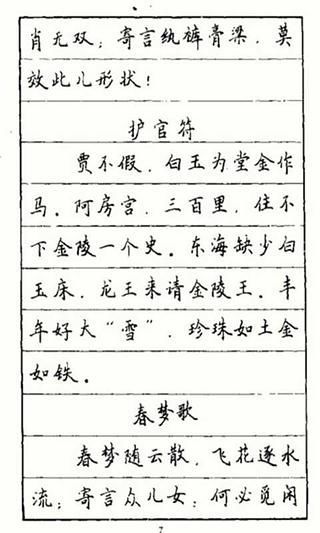 肖无双；寄言纨裤膏梁，莫
效此儿形状！
护官符
贾不假，白玉为堂金作
马。阿房宫，三百里，住不
下金陵一个史。东海缺少白
玉床，龙王来请金陵王。丰
年好大“雪”，珍珠如土金
如铁。
春梦歌
春梦随云散，飞花逐水
流；寄言众儿女：何必觅闲
7